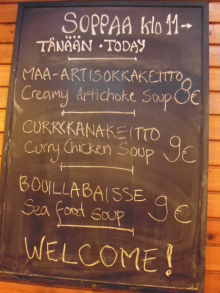 SOPPAA klo 11→
TÄNÄÄN · TODAY
MAA-ARTISOKKAKEITTO
Creamy Artichoke Soup 8€
CURRYKANAKEITTO
Curry Chicken Soup 9€
BOUILLABAISSE
Sea food Soup 9€
WELCOME!